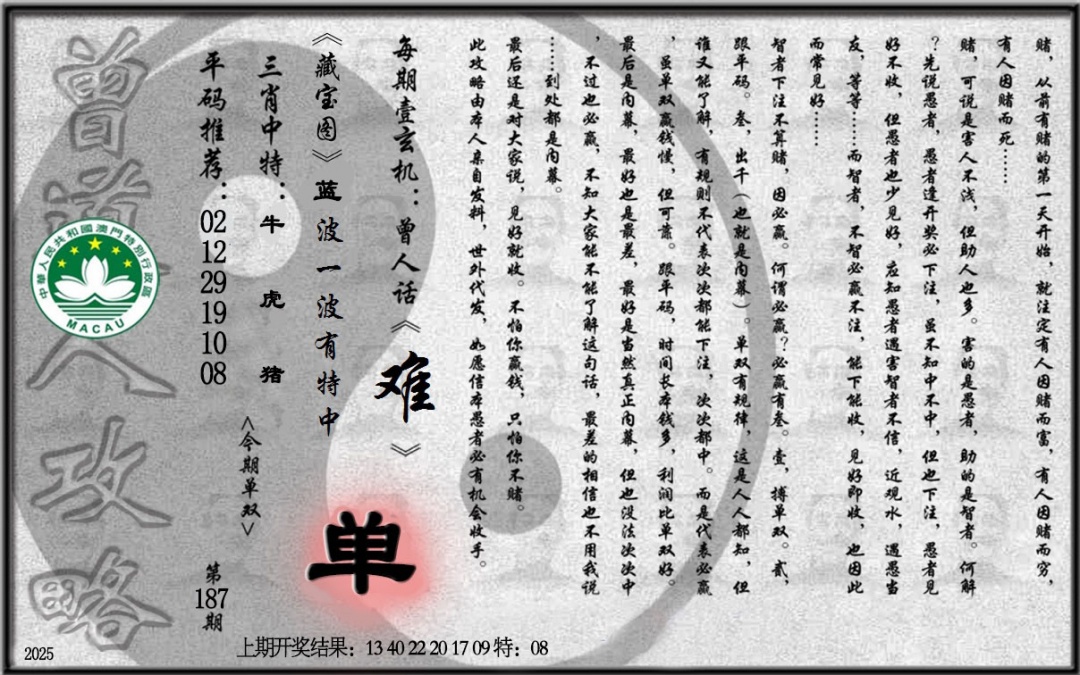 赌，从前有赌的第一天开始，就注定有人因赌而富，有人因赌而穷，
有人因赌而死……
赌，可说是害人不浅，但助人也多。害的是愚者，助的是智者。何解
？先说愚者，愚者逢开奖必下注，虽不知中不中，但也下注，愚者见
好不收，但愚者也少见好，应知愚者遇害智者不信，近观水，遇愚当
友，等等……而智者，不智必赢不注，能下能收，见好即收，也因此
而常见好……
智者下注不算赌，因必赢。何谓必赢？必赢有叁。壹，搏单双。贰，
跟平码。叁，出千（也就是内幕）。单双有规律，这是人人都知，但
谁又能了解，有规则不代表次次都能下注，次次都中。而是代表必赢
，虽单双赢钱慢，但可靠。跟平码，时间长本钱多，利润比单双好。
最后是内幕，最好也是最差，最好是当然真正内幕，但也没法次次中
，不过也必赢，不知大家能不能了解这句话，最差的相信也不用我说
……到处都是内幕。
最后还是对大家说，见好就收。不怕你赢钱，只怕你不赌。
此攻略由本人亲自发料，世外代发，如愿信本愚者必有机会收手。
每期壹玄机：曾人话《难》
《藏宝图》蓝波一波有特中
三肖中特：牛 虎 猪
平码推荐：02 12 29 19 10 08
<今期单双>
单
第187期
曾道人攻略
中華人民共和國澳門特別行政區
MACAU
2025
上期开奖结果：13 40 22 20 17 09 特：08